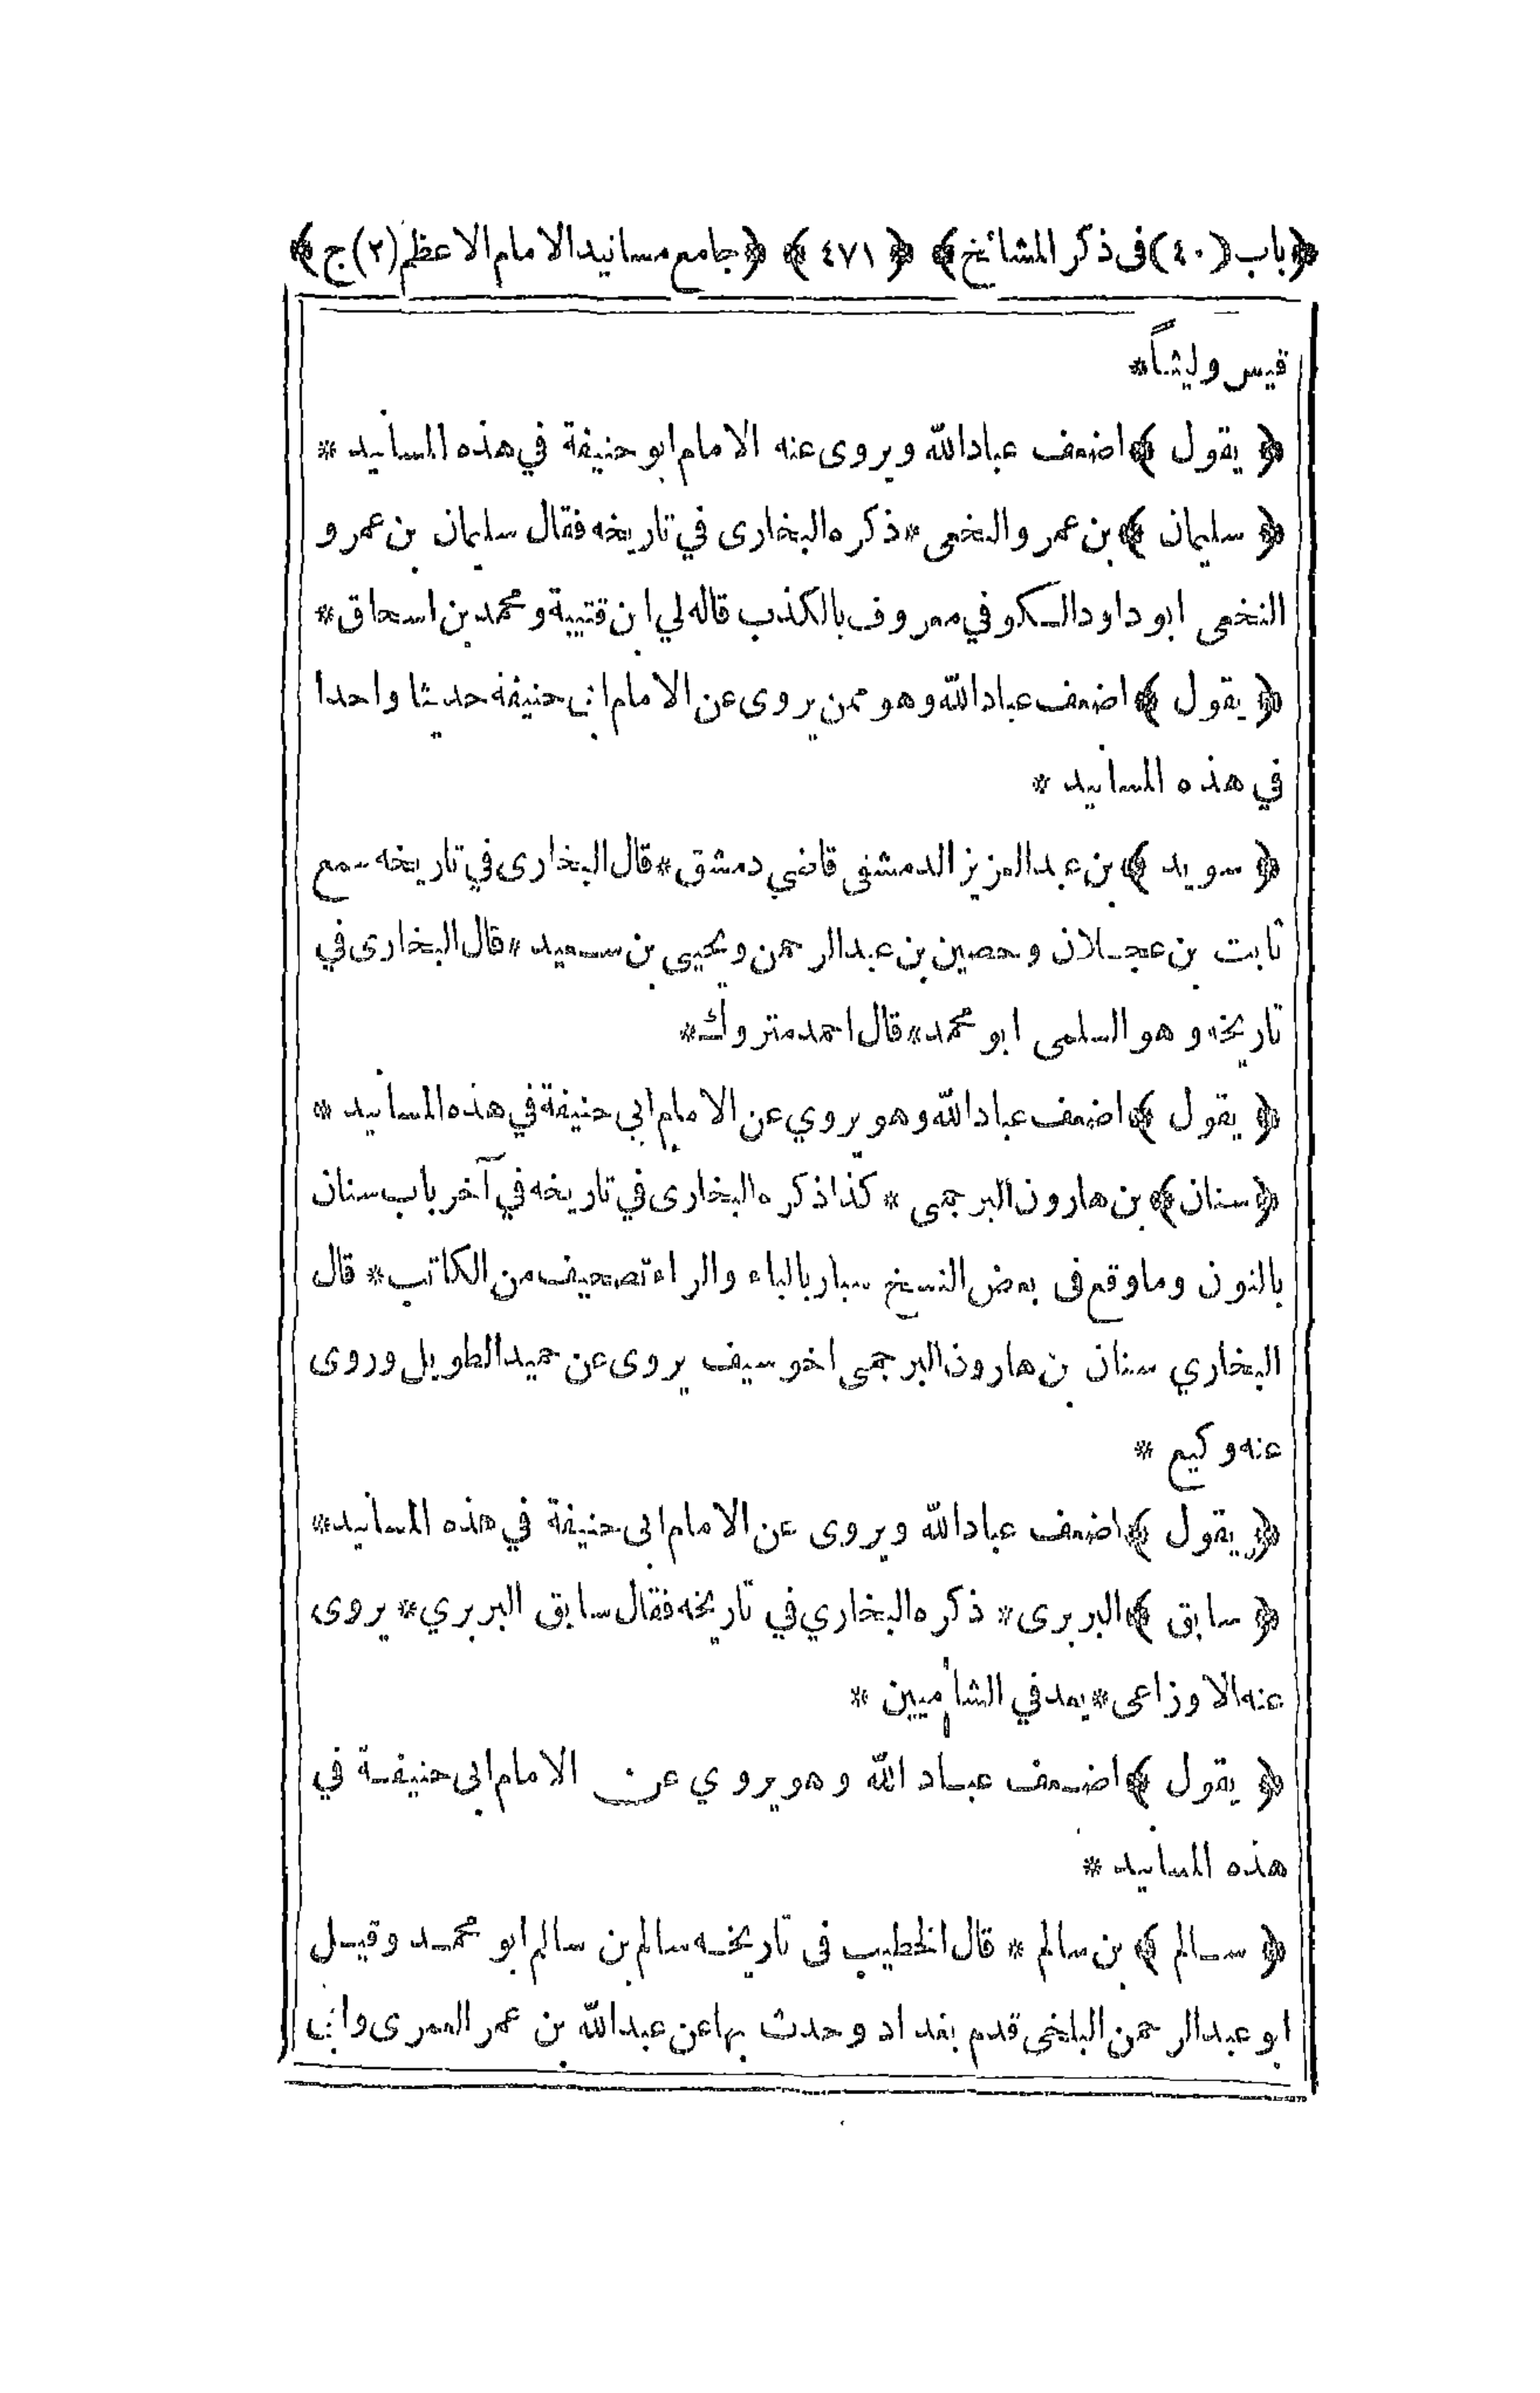 ﴿باب (٤٠) فى ذكر المشائخ﴾ ﴿٤٧١﴾ ﴿جامع مسانيد الامام الاعظم (٢) ج﴾
قيس وليثاً*
﴿ يقول ﴾ اضعف عباد الله ويروى عنه الامام ابو حنيفة في هذه المسانيد *
﴿ سليمان ﴾ بن عمرو النخعى * ذكره البخارى في تاريخه فقال سليمان بن عمرو
النخعى ابو داود الكوفي معروف بالكذب قاله لي ابن قتيبة ومحمد بن اسحاق *
﴿ يقول ﴾ اضعف عباد الله وهو ممن يروى عن الامام ابى حنيفة حديثا واحدا
في هذه المسانيد *
﴿ سويد ﴾ بن عبد العزيز الدمشقى قاضي دمشق * قال البخارى في تاريخه سمع
ثابت بن عجلان وحصين بن عبد الرحمن ويحيى بن سعيد * قال البخارى في
تاريخه وهو السلمى ابو محمد * قال احمد متروك *
﴿ يقول ﴾ اضعف عباد الله وهو يروي عن الامام ابي حنيفة في هذه المسانيد *
﴿سنان﴾ بن هارون البرجمى * كذا ذكره البخارى في تاريخه في آخر باب سنان
بالنون وما وقع فى بعض النسخ سيار بالياء والراء تصحيف من الكاتب * قال
البخاري سنان بن هارون البرجمى اخو سيف يروى عن حميد الطويل وروى
عنه وكيع *
﴿ يقول ﴾ اضعف عباد الله ويروى عن الامام ابى حنيفة في هذه المسانيد *
﴿ سابق ﴾ البربرى * ذكره البخاري في تاريخه فقال سابق البربري * يروى
عنه الاوزاعى * يعد في الشاميين *
﴿ يقول ﴾ اضعف عباد الله وهو يروي عن الامام ابى حنيفة في
هذه المسانيد *
﴿ سالم ﴾ بن سالم * قال الخطيب فى تاريخه سالم بن سالم ابو محمد وقيل
ابو عبد الرحمن البلخى قدم بغداد وحدث بها عن عبد الله بن عمر العمرى وابى